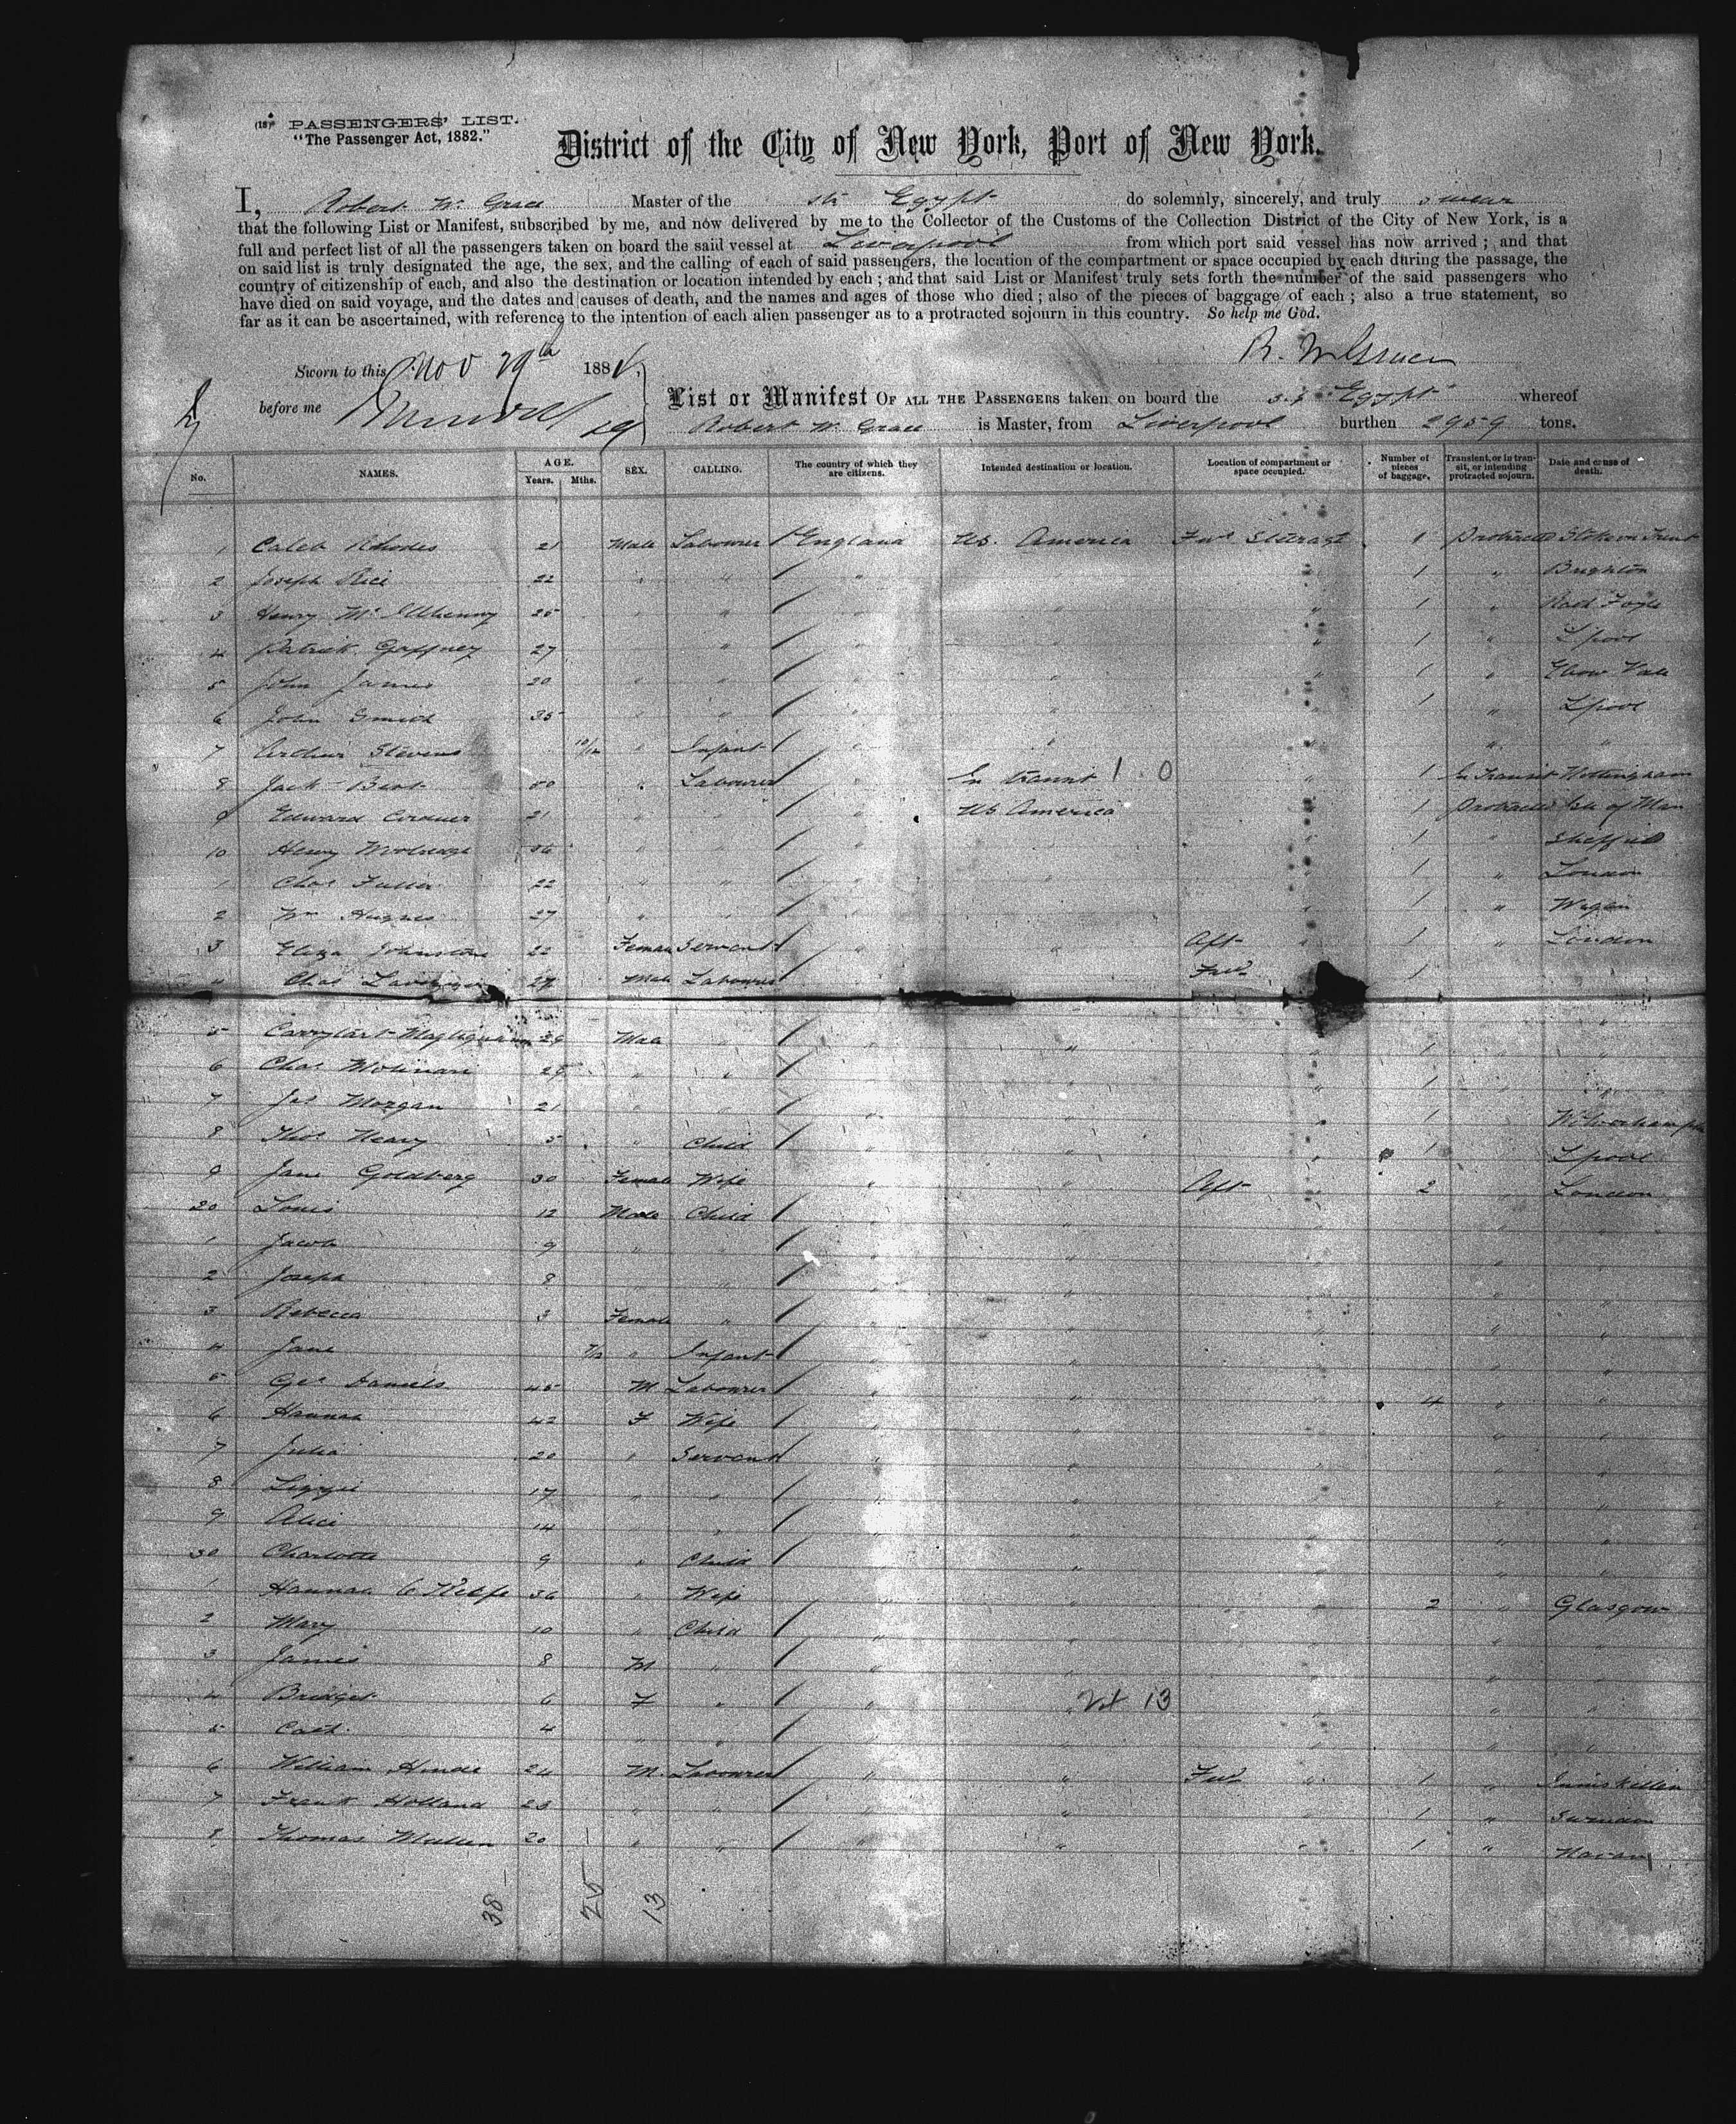 (18) PASSENGERS' LIST.
"The Passenger Act, 1882."
District of the City of New York, Port of New York.
I, Robert W. Grace Master of the Str Egypt do solemnly, sincerely, and truly swear
that the following List or Manifest, subscribed by me, and now delivered by me to the Collector of the Customs of the Collection District of the City of New York, is a
full and perfect list of all the passengers taken on board the said vessel at Liverpool from which port said vessel has now arrived; and that
on said list is truly designated the age, the sex, and the calling of each of said passengers, the location of the compartment or space occupied by each during the passage, the
country of citizenship of each, and also the destination or location intended by each; and that said List or Manifest truly sets forth the number of the said passengers who
have died on said voyage, and the dates and causes of death, and the names and ages of those who died; also of the pieces of baggage of each; also a true statement, so
far as it can be ascertained, with reference to the intention of each alien passenger as to a protracted sojourn in this country. So help me God.
R. W. Grace
Sworn to this Nov 29th 188
before me
List or Manifest OF ALL THE PASSENGERS taken on board the S.S. Egypt whereof
Robert W. Grace is Master, from Liverpool burthen 2959 tons.
No. NAMES. AGE. Years. Mths. SEX. CALLING. The country of which they are citizens. Intended destination or location. Location of compartment or space occupied. Number of pieces of baggage. Transient, or in transit, or intending protracted sojourn. Date and cause of death.
1 Caleb Rhodes 21 Male Labourer England US. America Fwd Steerage 1 Protracted Stoke on Trent
2 Joseph Rice 22 " " " " 1 " Brighton
3 Henry Mc Ilhenny 25 " " " " 1 "
4 Patrick Gaffney 27 " " " " 1 " L'pool
5 John James 20 " " " " " 1 " Ebow Vale
6 John Smith 35 " " " " " 1 " L'pool
7 Arthur Stevens 10/12 " Infant " " " "
8 Jack Bent 50 " Labourer " In transit 1.0 " 1 In Transit Nottingham
9 Edward 21 " " " US America 1 Protracted Isle of Man
10 Henry 36 " " " 1 " Sheffield
1 Chas Fuller 22 " " " " 1 " London
2 Wm Hughes 27 " " " " 1 " Wigan
3 Eliza Johnstone 22 Female Servant " " Aft " 1 " London
4 Chas 27 Male Labourer Fwd 1
5 29 Male " " " 1 "
6 Chas Molinari 29 " " " 1 "
7 Jas Morgan 21 " " " " " 1 Wolverhampton
8 Thos Neary 5 " Child " " " 1 L'pool
9 Jane Goldberg 30 Female Wife " " Aft " 2 London
20 Louis 12 Male Child " " " "
1 Jacob 9 " " " " " "
2 Joseph 8 " " " " "
3 Rebecca 3 Female " " " " " "
4 Jane 7/12 " Infant " " " "
5 Geo Daniels 45 M Labourer " " " 4 " "
6 Hannah 42 F Wife " " " " "
7 Julia 20 " Servant " " " "
8 Lizzie 17 " " " " " " "
9 Alice 14 " " " " " "
30 Charlotte 9 " Child " " " " "
1 Hannah O'Keefe 36 " Wife " " " 2 " Glasgow
2 Mary 10 " Child " " " " "
3 James 8 M " " " " " "
4 Bridget 6 F " " " 13 " " "
5 Cath. 4 " " " " " " "
6 William Hinde 24 M. Labourer " " Fwd " 1 " Inniskillen
7 Frank Holland 23 " " " " " 1 " Swindon
8 Thomas Mullen 20 " " " " " 1 " Navan
38 25 13